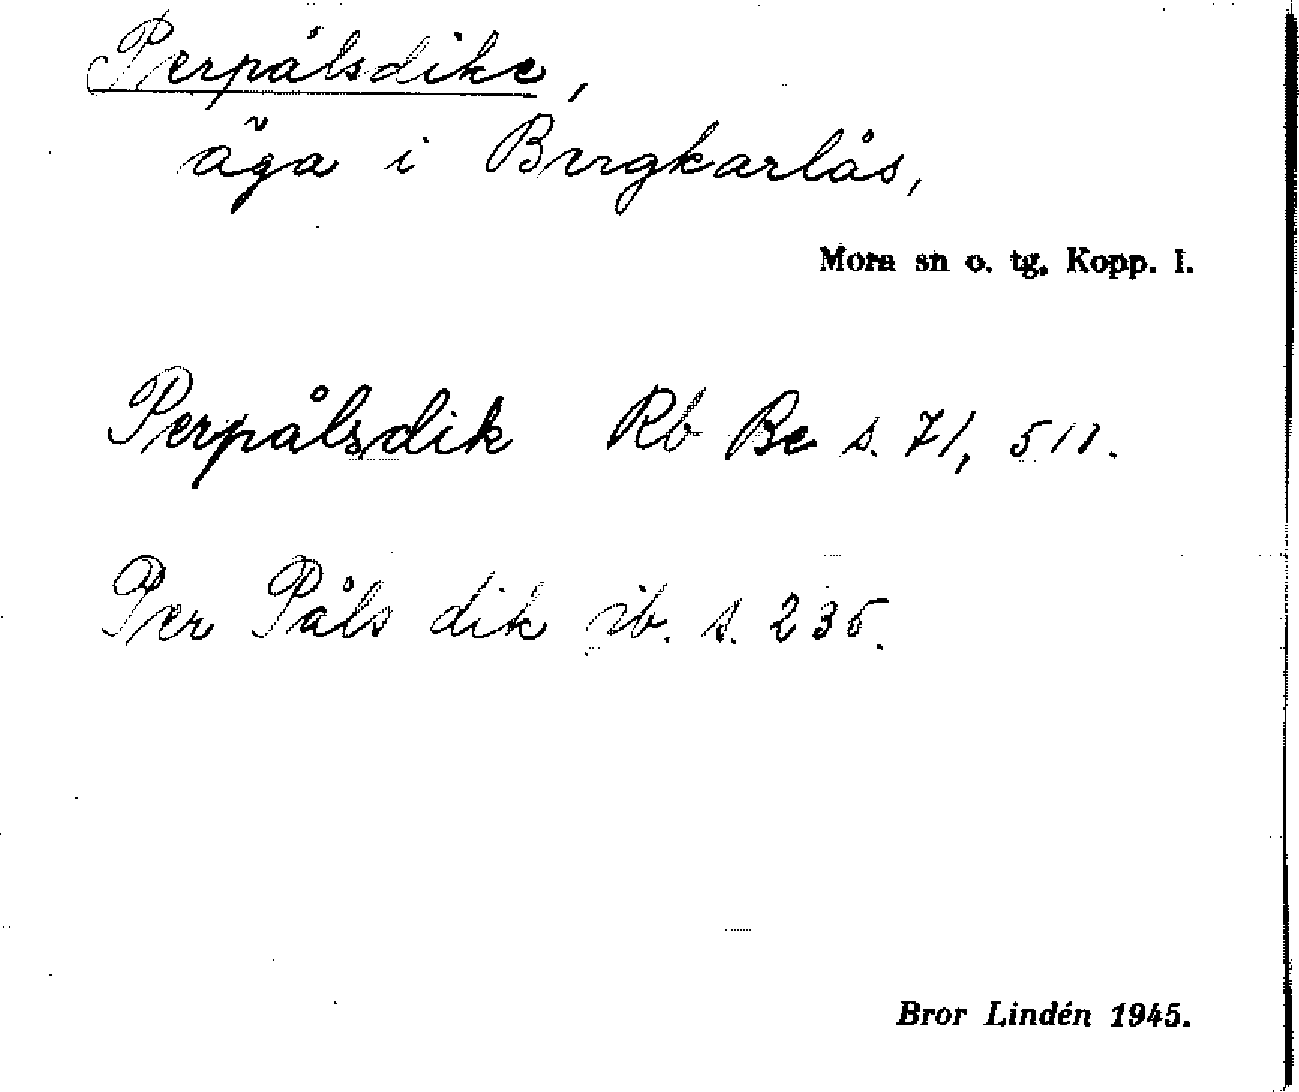 Perpålsdike,
äga i Bergkarlås,
Mora sn o. tg. Kopp. l.
Perpålsdik Rb Be s. 71, 511.
Per Påls dik ib. s. 236.
Bror Lindén 1945.